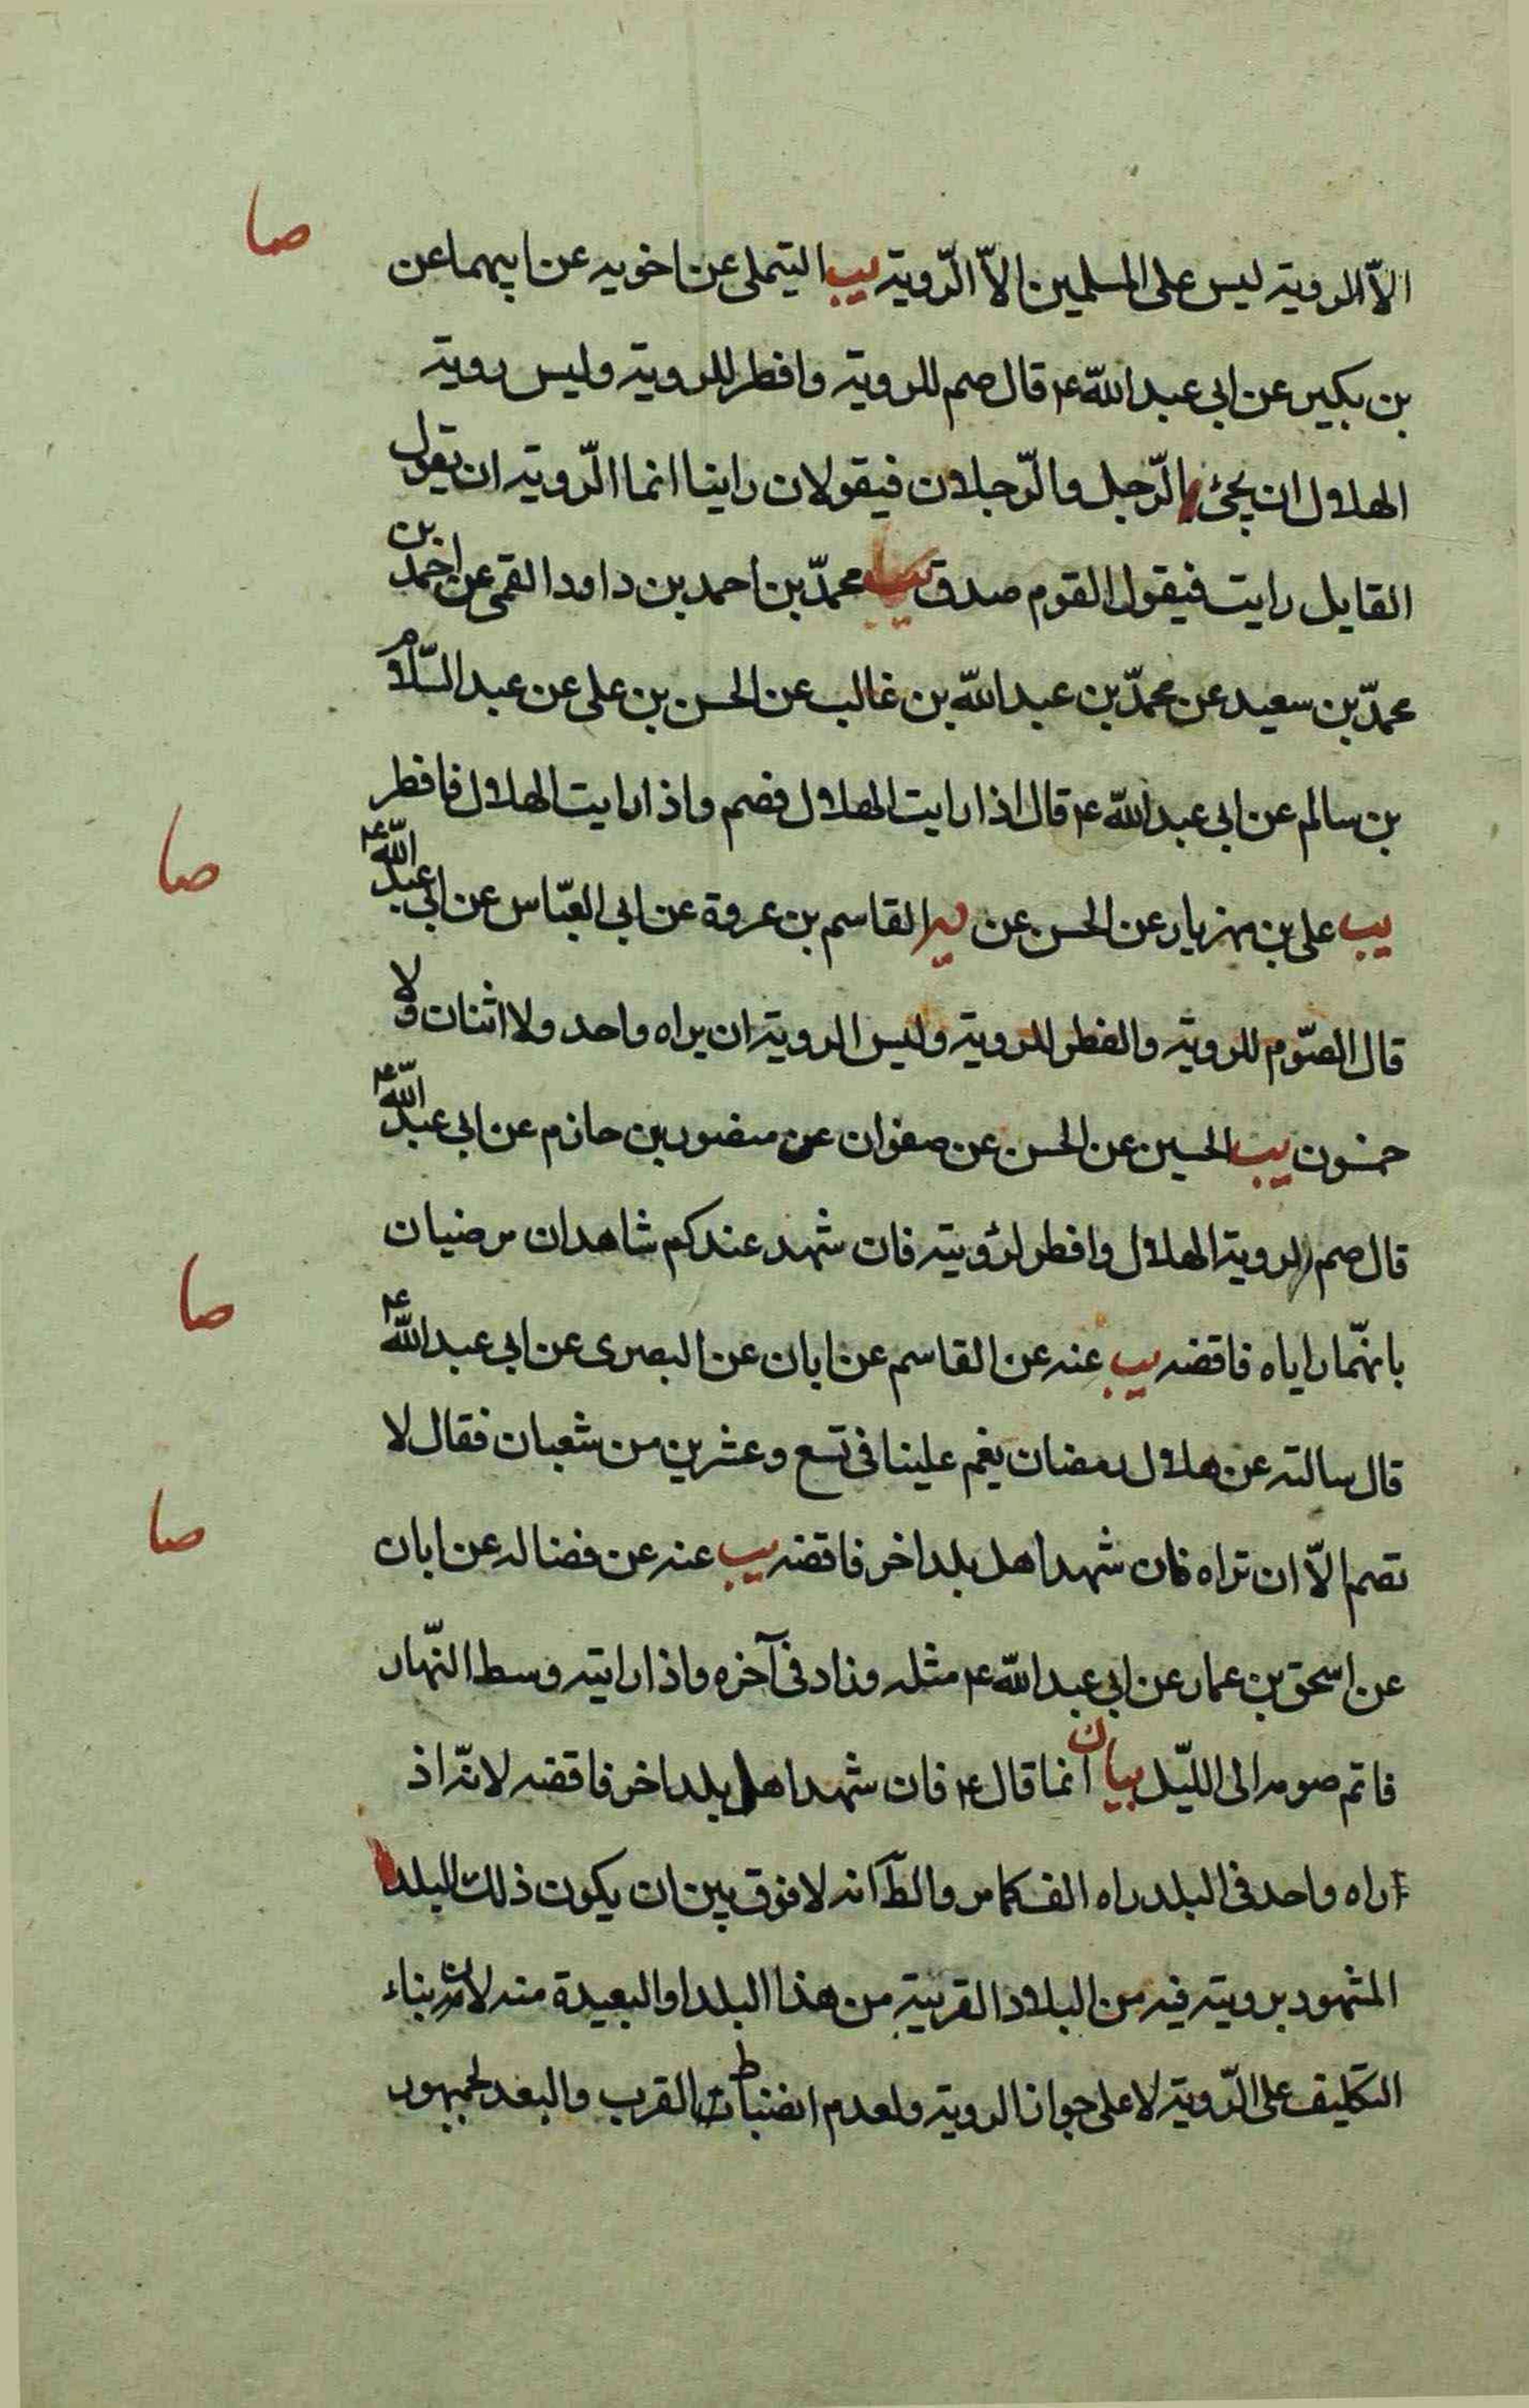 صا
الّا الروية ليس على المسلمين الّا الرّوية يب التيملى عن اخويه عن ابيهما عن
بن بكير عن ابي عبد اللّه ع قال صم للروية وافطر للروية وليس روية
الهلال ان يجئ الرّجل والرّجلان فيقولان راينا انما الرّوية ان يقول
القايل رايت فيقول القوم صدق يب محمّد بن احمد بن داود القمى عن احمد بن
محمّد بن سعيد عن محمّد بن عبد اللّه بن غالب عن الحسن بن على عن عبد السّلام
بن سالم عن ابي عبد اللّه ع قال اذا رايت الهلال فصم واذا رايت الهلال فافطر
صا
يب على بن مهزيار عن الحسن عن القاسم بن عروة عن ابي العبّاس عن ابي عبد اللّه ع
قال الصّوم للروية والفطر للروية وليس الروية ان يراه واحد ولا اثنان ولا
خمسون يب الحسين عن الحسن عن صفوان عن منصور بن حازم عن ابي عبد اللّه ع
قال صم لروية الهلال وافطر لرؤيته فان شهد عندكم شاهدان مرضيان
صا
بانهّما راياه فاقضه يب عنه عن القاسم عن ابان عن البصرى عن ابي عبد اللّه ع
قال سالته عن هلال رمضان يغم علينا فى تسع وعشرين من شعبان فقال لا
صا
تصم الّا ان تراه فان شهد اهل بلد اخر فاقضه يب عنه عن فضاله عن ابان
عن اسحق بن عمار عن ابي عبد اللّه ع مثله وزاد فى آخره واذا رايته وسط النّهار
فاتم صومه الى اللّيل بيان انما قال ع فان شهد اهل بلد اخر فاقضه لانّه اذ
ا راه واحد فى البلد راه الف كما مر والظآ انه لا فرق بين ان يكون ذلك البلد
المشهود برويته فيه من البلاد القريبة من هذا البلد او البعيدة منه لان بناء
التكليف على الرّوية لا على جواز الروية ولعدم انضباط القرب والبعد لجمهور